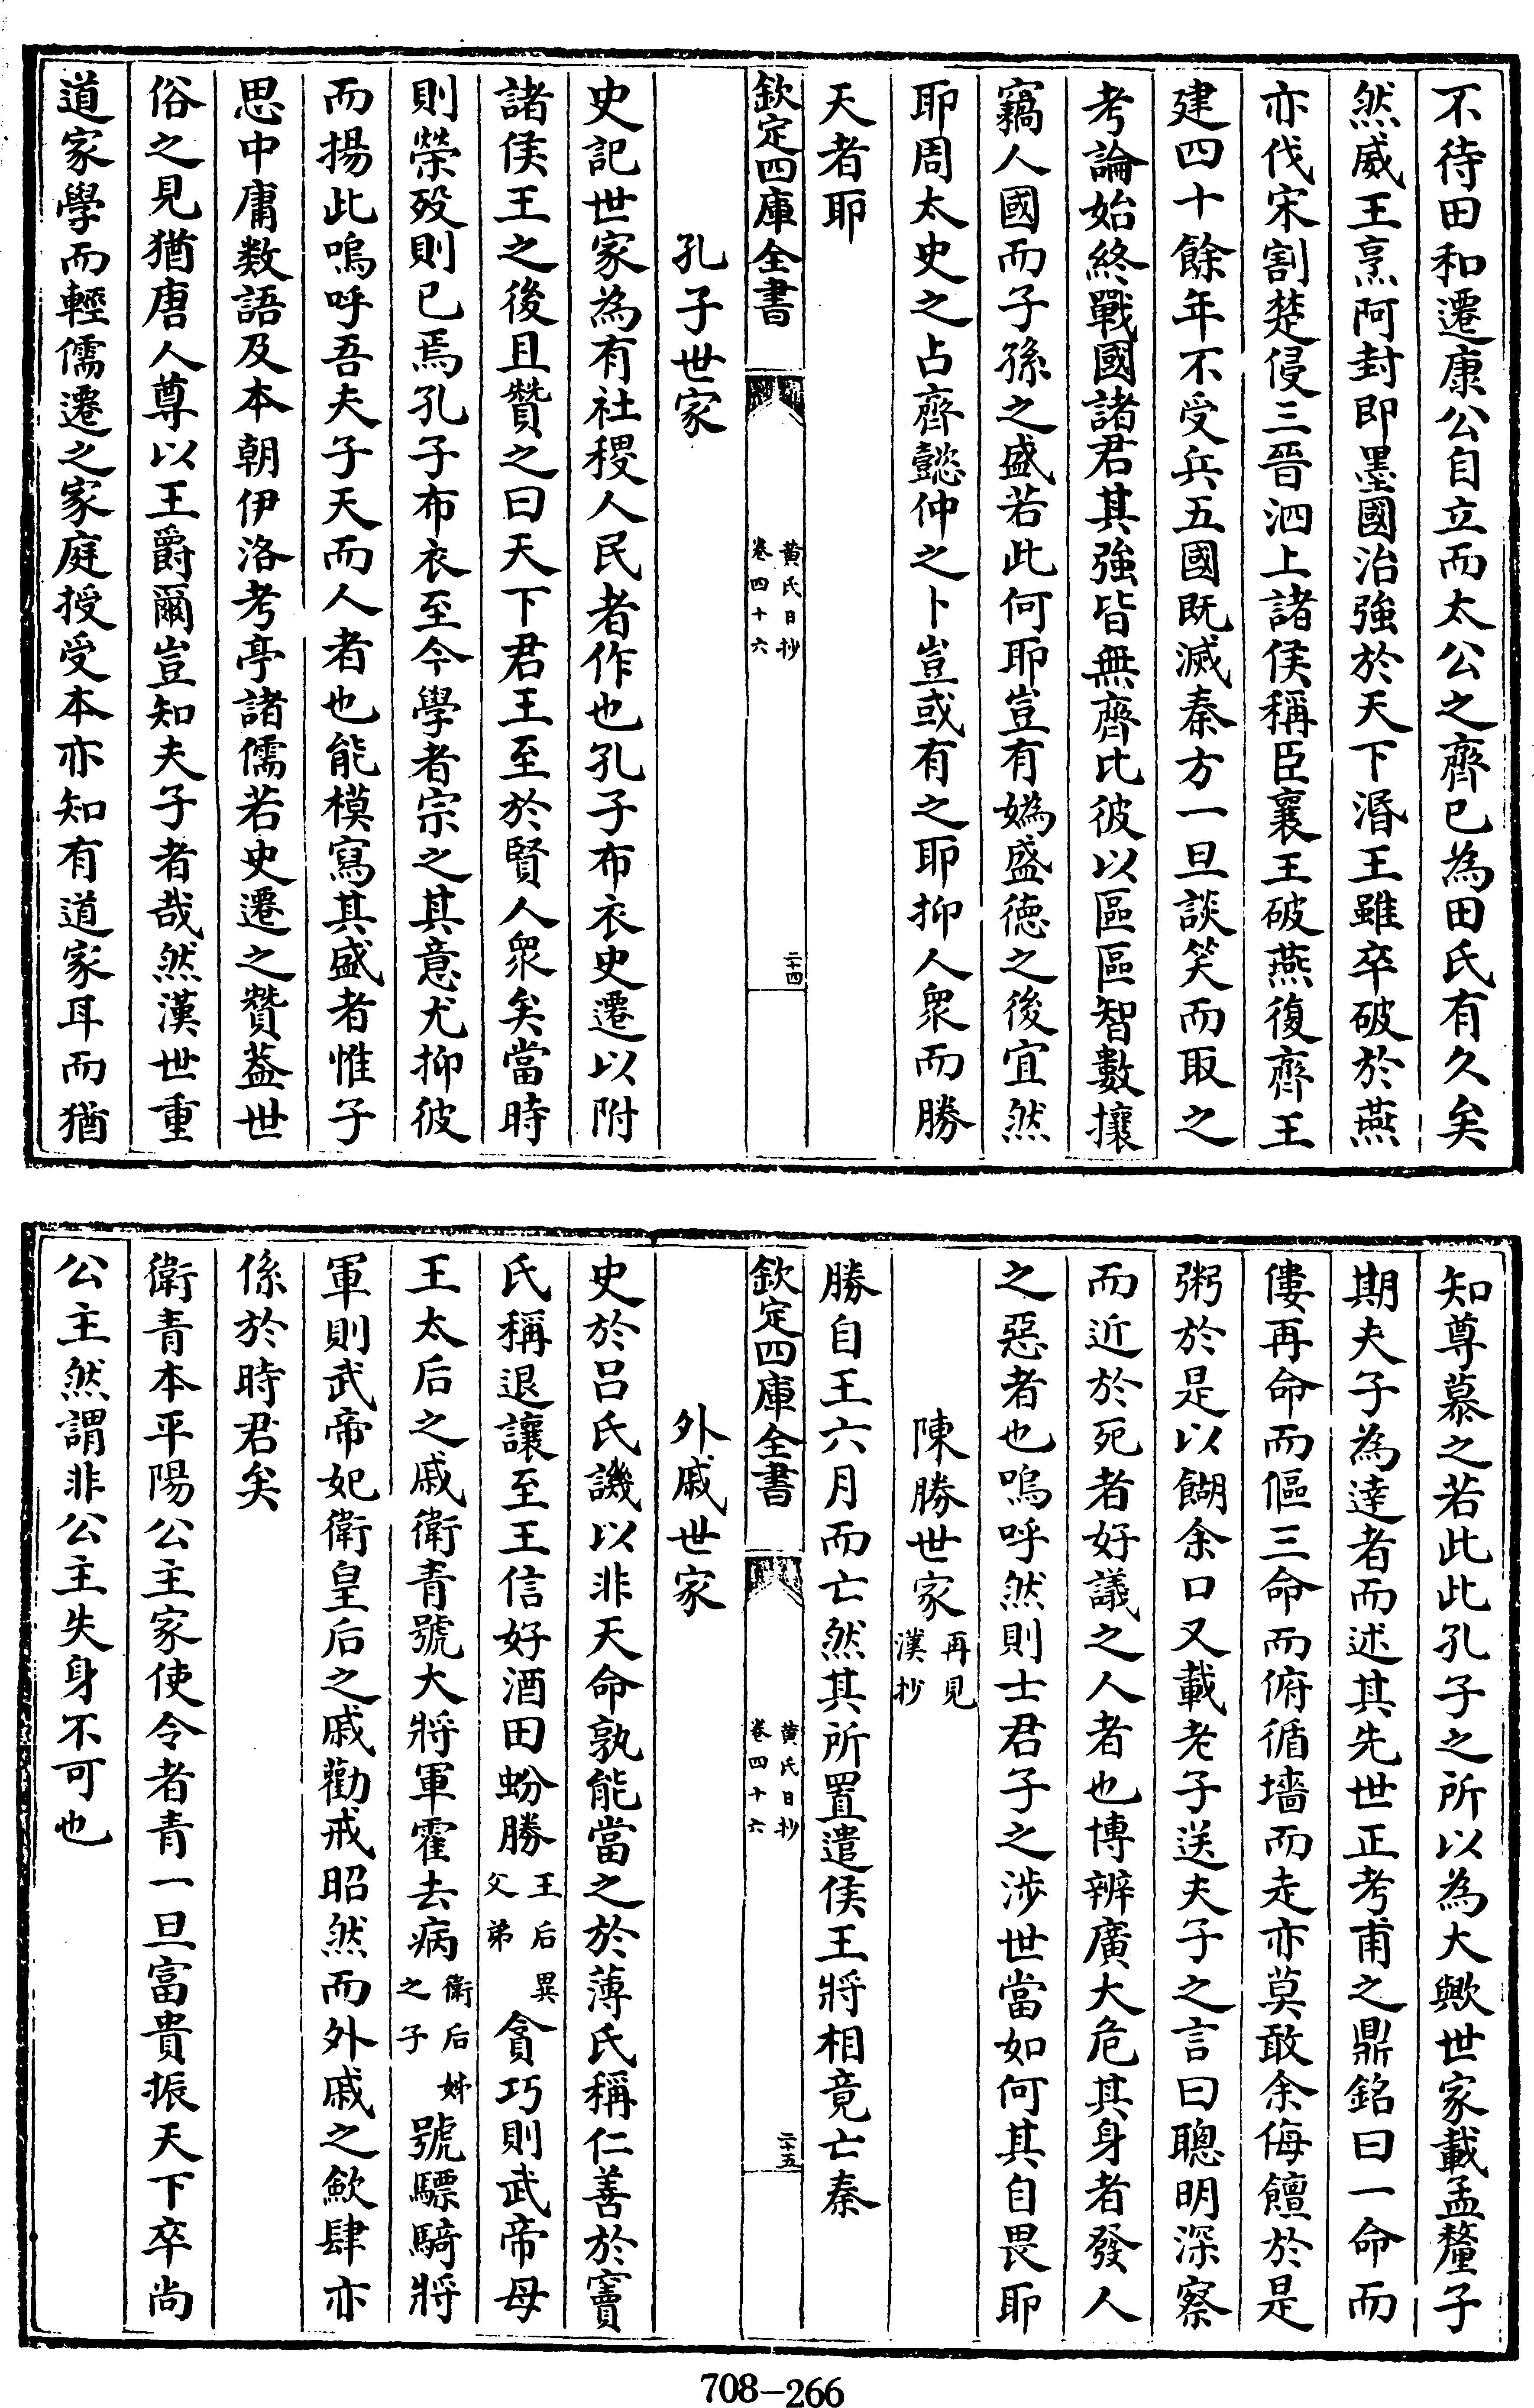 不待田和遷康公自立而太公之齊已為田氏有久矣
然威王烹阿封即墨國治強於天下湣王雖卒破於燕
亦伐宋割楚侵三晉泗上諸侯稱臣襄王破燕復齊王
建四十餘年不受兵五國既滅秦方一旦談笑而取之
考論始終戰國諸君其強皆無齊比彼以區區智數攘
竊人國而子孫之盛若此何耶豈有媯盛德之後宜然
耶周太史之占齊懿仲之卜豈或有之耶抑人衆而勝
天者耶
欽定四庫全書
黄氏日抄
卷四十六
二十四
孔子世家
史記世家為有社稷人民者作也孔子布衣史遷以附
諸侯王之後且贊之曰天下君王至於賢人衆矣當時
則榮殁則已焉孔子布衣至今學者宗之其意尤抑彼
而揚此嗚呼吾夫子天而人者也能模寫其盛者惟子
思中庸数語及本朝伊洛考亭諸儒若史遷之贊葢世
俗之見猶唐人尊以王爵爾豈知夫子者哉然漢世重
道家學而輕儒遷之家庭授受本亦知有道家耳而猶
知尊慕之若此此孔子之所以為大歟世家載孟釐子
期夫子為達者而述其先世正考甫之鼎銘曰一命而
僂再命而傴三命而俯循墻而走亦莫敢余侮饘於是
粥於是以餬余口又載老子送夫子之言曰聰明深察
而近於死者好議之人者也博辨廣大危其身者發人
之惡者也嗚呼然則士君子之涉世當如何其自畏耶
陳勝世家再見
漢抄
勝自王六月而亡然其所置遣侯王將相竟亡秦
欽定四庫全書
黄氏日抄
卷四十六
二十五
外戚世家
史於吕氏譏以非天命孰能當之於薄氏稱仁善於竇
氏稱退讓至王信好酒田蚡勝王后異
父弟貪巧則武帝母
王太后之戚衛青號大將軍霍去病衛后姊
之子號驃騎將
軍則武帝妃衛皇后之戚勸戒昭然而外戚之歛肆亦
係於時君矣
衛青本平陽公主家使令者青一旦富貴振天下卒尚
公主然謂非公主失身不可也
708-266